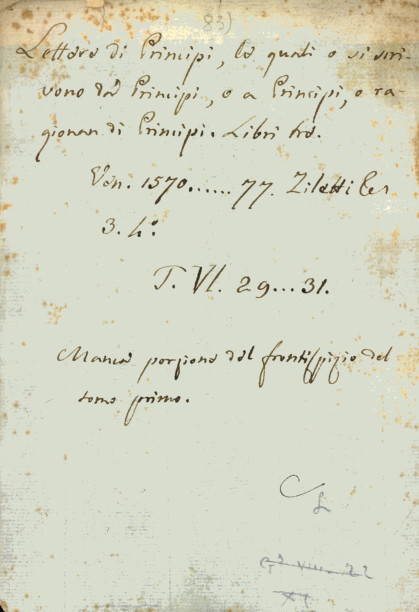 83)
Lettere di Principi, le quali o si scri-
vono da' Principi, o a Principi, o ra-
gionan di Principi. Libri tre.
Ven. 1570......77. Ziletti
3. 4°.
T. VI. 29...31.
Manca porzione del frontispizio del
tomo primo.